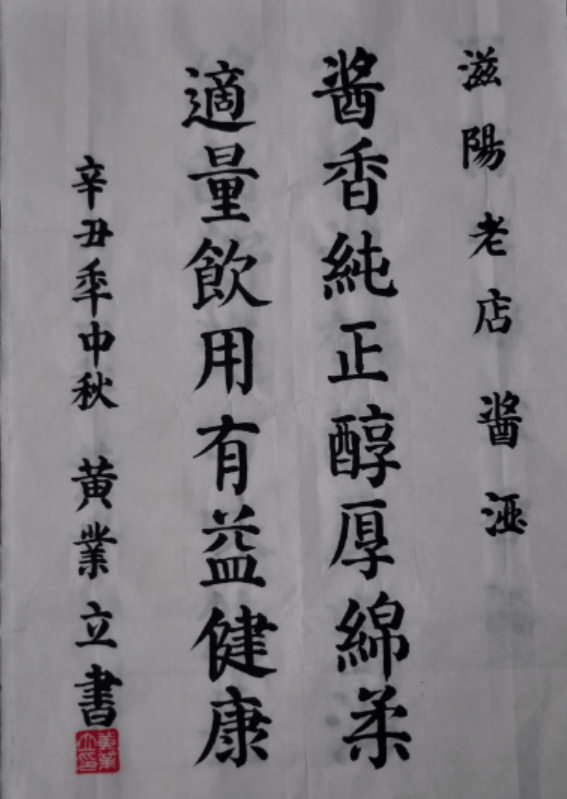 滋陽老店酱
酱香純正醇厚綿柔
適量飲用有益健康
辛丑年中秋 黄業立書
黄業立印